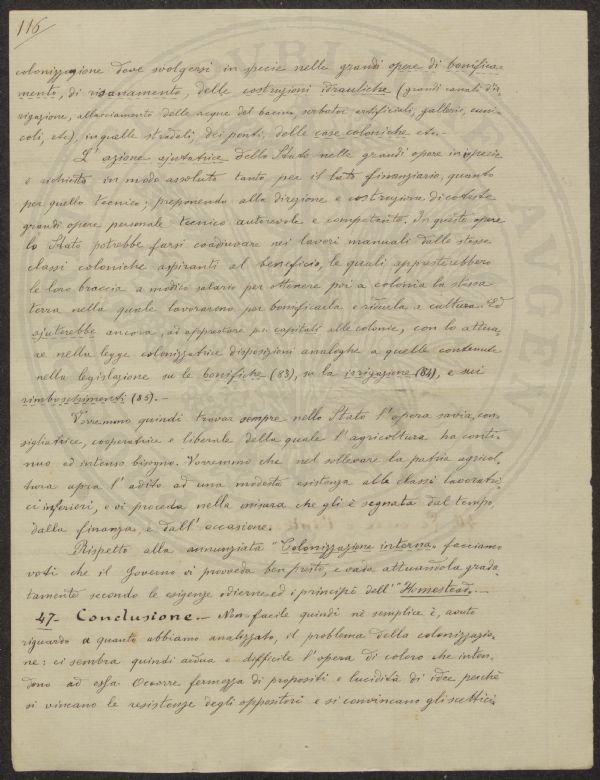 116
colonizzazione deve svolgersi in specie nelle grandi opere di bonifica-
mento, di risanamento, delle costruzioni idrauliche (grandi canali d'ir-
rigazione, allacciamento delle acque del bacino, serbatoi artificiali, gallerie, cuni-
coli, etc), in quelle stradali, dei ponti, delle case coloniche etc.-
L'azione ajutatrice dello Stato nelle grandi opere in ispecie
è richiesta in modo assoluto tanto per il lato finanziario, quanto
per quello tecnico; preponendo alla direzione e costruzione di coteste
grandi opere personale tecnico autorevole e competente. In queste opere
lo Stato potrebbe farsi coadiuvare nei lavori manuali dalle stesse
classi coloniche aspiranti al beneficio, le quali appresterebbero
le loro braccia a modico salario per ottenere poi a colonia la stessa
terra nella quale lavorarono per bonificarla e ridurla a cultura. Ed
ajuterebbe ancora, ad apprestare pei capitali alle colonie, con lo attua-
re nella legge colonizzatrice disposizioni analoghe a quelle contenute
nella legislazione su le bonifiche (83), su la irrigazione (84), e sui
rimboschimenti (85).-
Vorremmo quindi trovar sempre nello Stato l'opera savia, con-
sigliatrice, cooperatrice e liberale della quale l'agricoltura ha conti-
nuo ed intenso bisogno. Vorremmo che nel sollevare la patria agricol-
tura apra l'adito ad una modesta esistenza alle classi lavoratri-
ci inferiori, e vi proceda nella misura che gli è segnata dal tempo,
dalla finanza, e dall'occasione.
Rispetto alla annunziata "Colonizzazione interna" facciamo
voti che il Governo vi provveda ben presto, e vada attuandola grada-
tamente secondo le esigenze odierne ed i principî dell'"Homestead".-
47- Conclusione.- Non facile quindi nè semplice è, avuto
riguardo a quanto abbiamo analizzato, il problema della colonizzazio-
ne: ci sembra quindi ardua e difficile l'opera di coloro che inten-
dono ad essa. Occorre fermezza di propositi e lucidità di idee perchè
si vincano le resistenze degli oppositori e si convincano gli scettici.